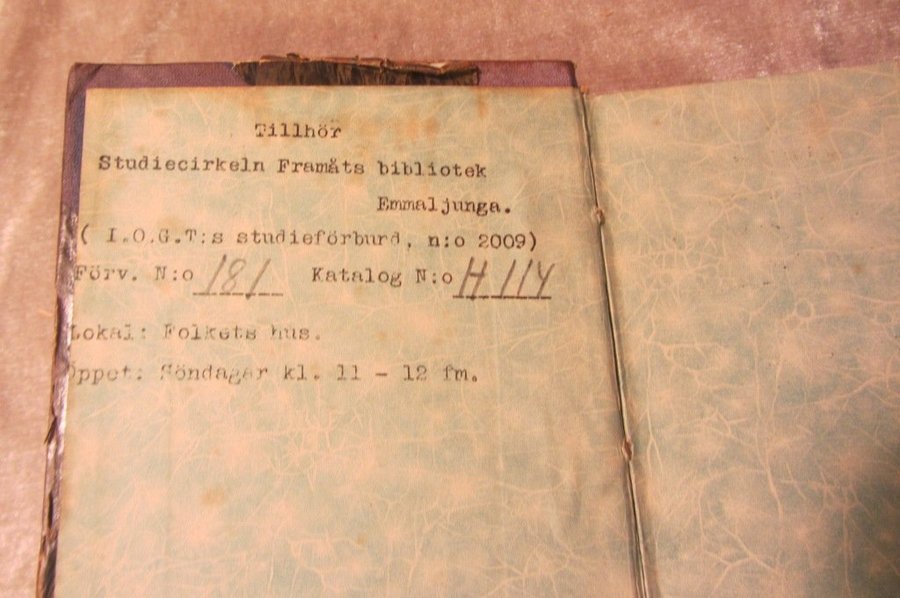 Tillhör
Studiecirkeln Framåts bibliotek
Emmaljunga.
( I.O.G.T:s studieförburd, n:o 2009)
Förv. N:o 181 Katalog N:o H 114
Lokal: Folkets hus.
Öppet: Söndagar kl. 11 - 12 fm.